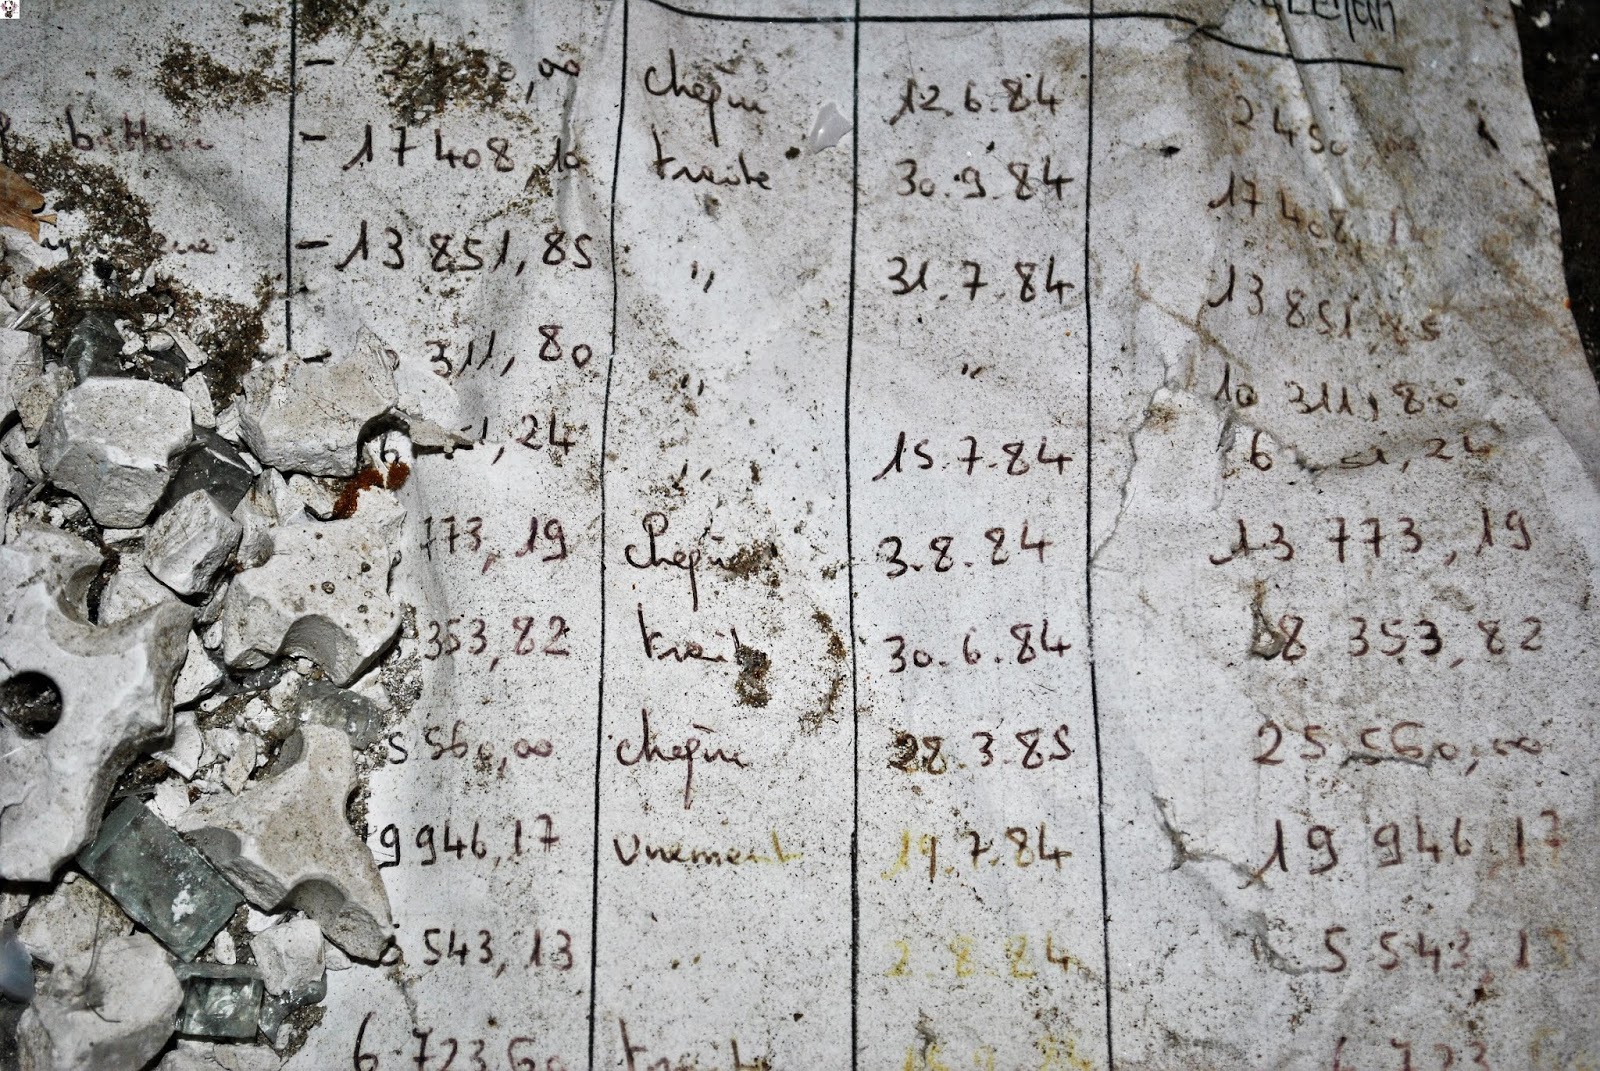 - ,00 chèque 12.6.84 2450
- 17 408,10 traite 30.9.84 17 408,1
- 13 851,85 " 31.7.84 13 851,85
- 311,80 " " 10 311,80
6 1,24 " 15.7.84 6 51,24
773,19 chèque 3.8.84 13 773,19
353,82 traite 30.6.84 8 353,82
5 560,00 chèque 28.3.85 25 560,00
9 946,17 virement 19.7.84 19 946,17
5 543,13 " 2.8.84 5 543,13
6 723,60 traite 6 723